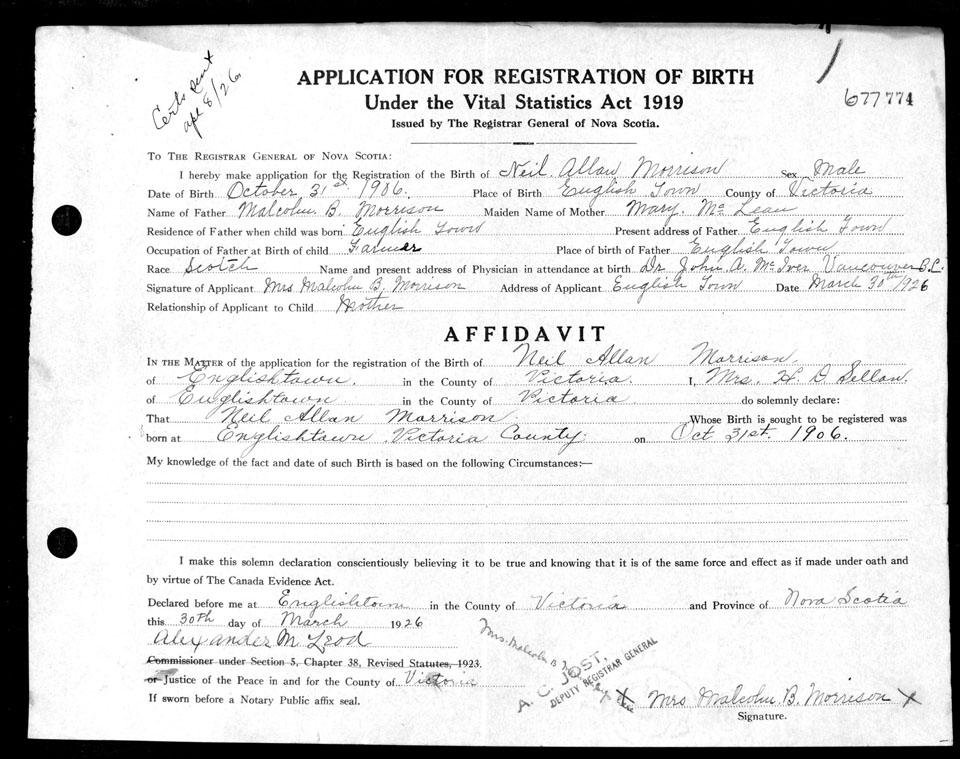 Certs sent
apl 8/26
APPLICATION FOR REGISTRATION OF BIRTH
Under the Vital Statistics Act 1919
Issued by The Registrar General of Nova Scotia.
677774
To The Registrar General of Nova Scotia:
I hereby make application for the Registration of the Birth of Neil Allan Morrison Sex Male
Date of Birth October 31st 1906. Place of Birth English Town County of Victoria
Name of Father Malcolm B. Morrison Maiden Name of Mother Mary. Mc Lean
Residence of Father when child was born English Town Present address of Father English Town
Occupation of Father at Birth of child Farmer Place of birth of Father English Town
Race Scotch Name and present address of Physician in attendance at birth Dr John A. Mc Iver Vancouver B.C.
Signature of Applicant Mrs Malcolm B. Morrison Address of Applicant English Town Date March 30th 1926
Relationship of Applicant to Child Mother
AFFIDAVIT
In the Matter of the application for the registration of the Birth of Neil Allan Morrison.
of Englishtown. in the County of Victoria. I, Mrs. H. D.
of Englishtown in the County of Victoria do solemnly declare:
That Neil Allan Morrison Whose Birth is sought to be registered was
born at Englishtown Victoria County. on Oct 31st. 1906.
My knowledge of the fact and date of such Birth is based on the following Circumstances:—
I make this solemn declaration conscientiously believing it to be true and knowing that it is of the same force and effect as if made under oath and
by virtue of The Canada Evidence Act.
Declared before me at Englishtown in the County of Victoria and Province of Nova Scotia
this 30th day of March 1926
Alexander McLeod
Commissioner under Section 5, Chapter 38, Revised Statutes, 1923.
or Justice of the Peace in and for the County of Victoria
If sworn before a Notary Public affix seal.
Mrs. Malcolm B
A. C. JOST,
DEPUTY REGISTRAR GENERAL
X Mrs Malcolm. B. Morrison X
Signature.